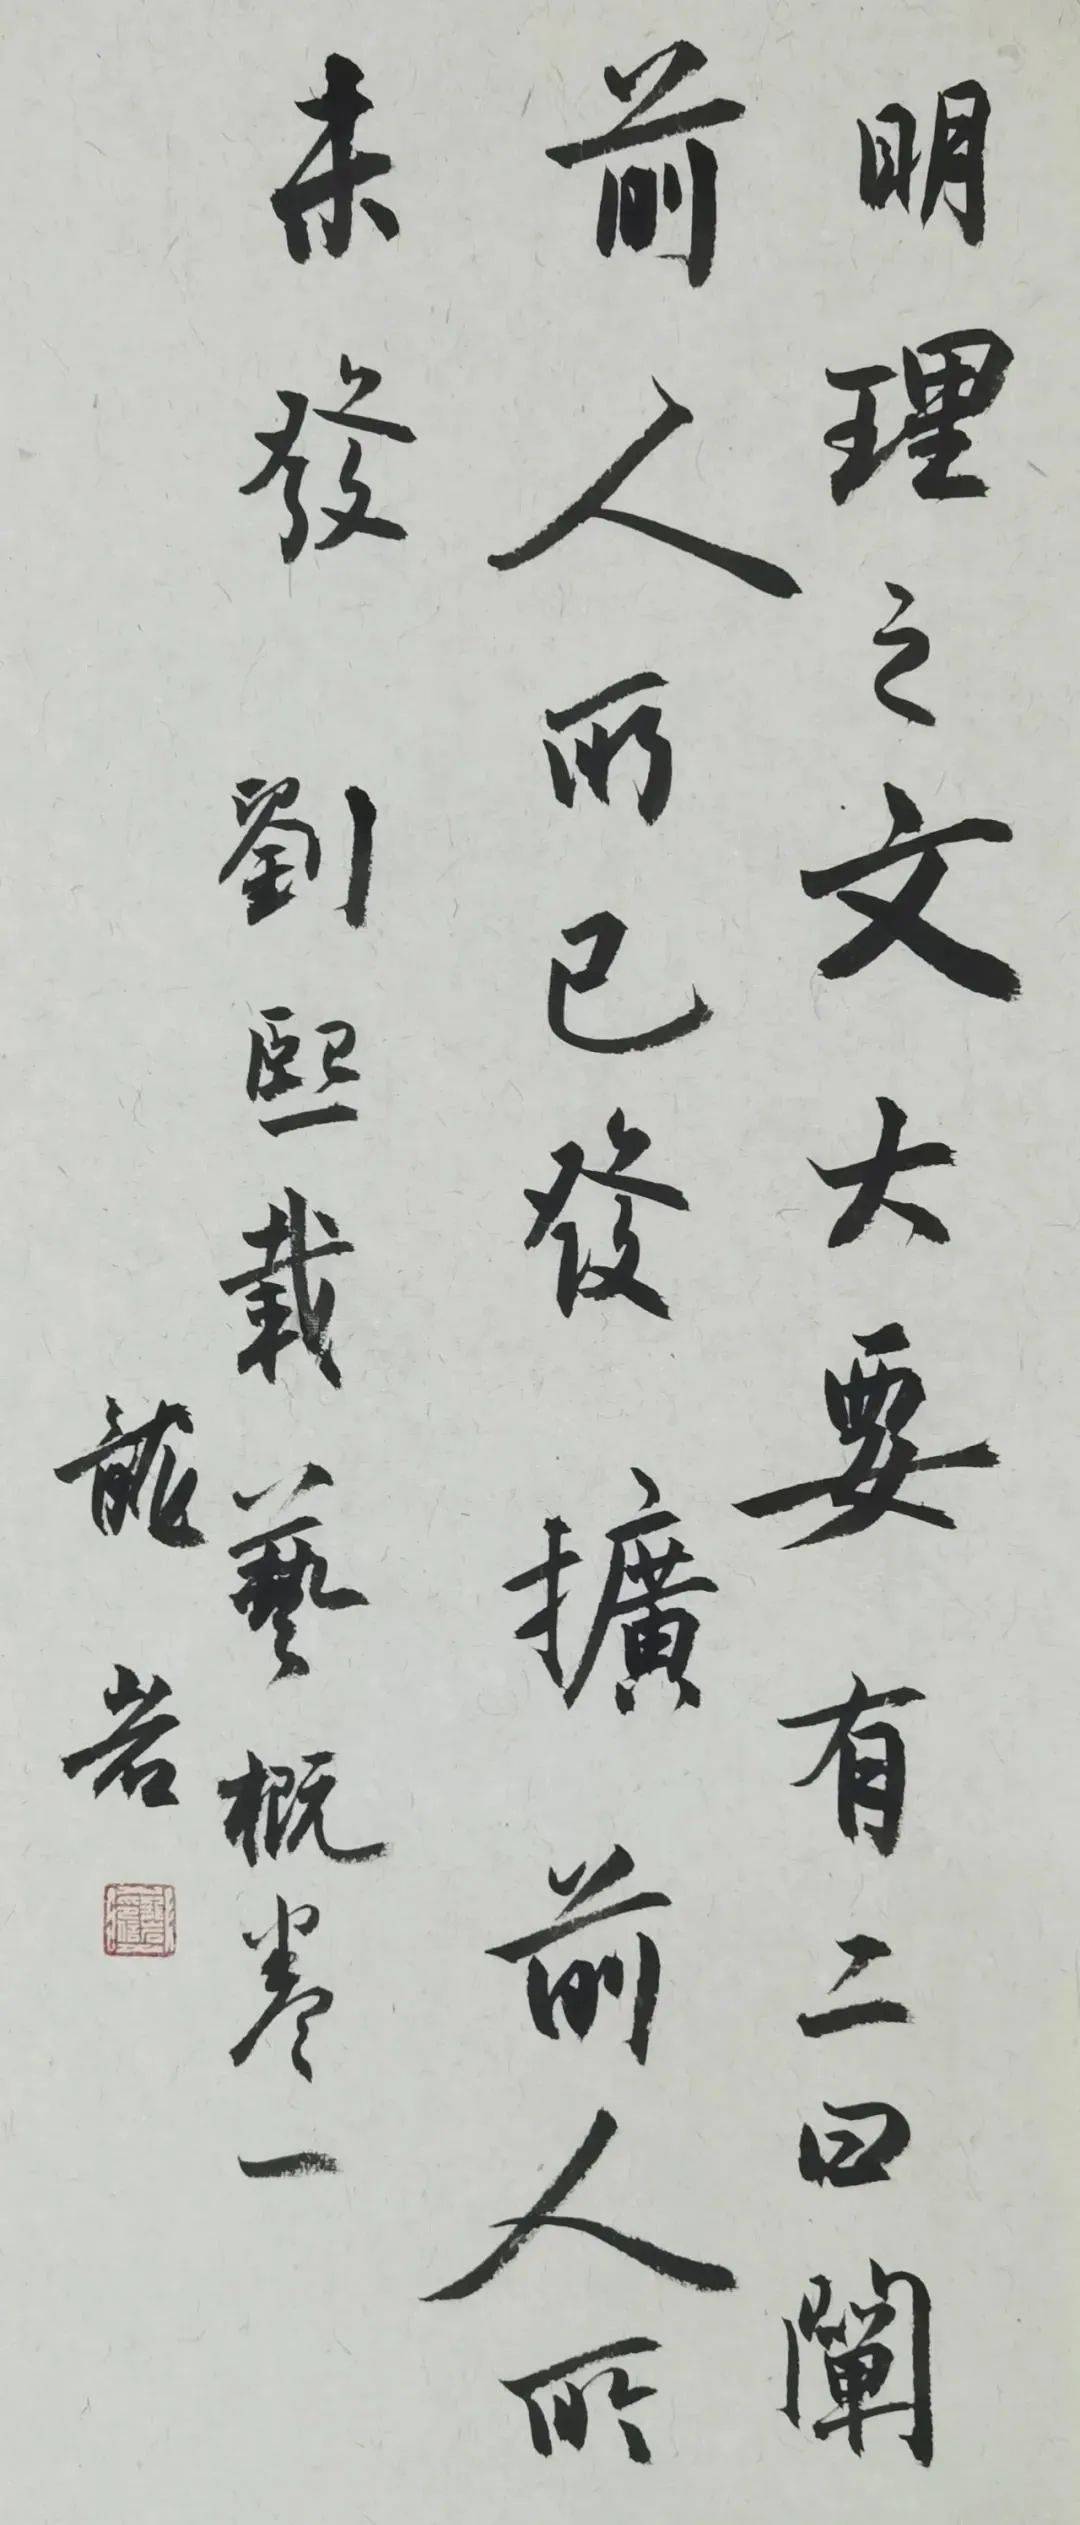 明理之文大要有二曰闡
前人所已發擴前人所
未發 劉熙載藝概卷一
龍岩